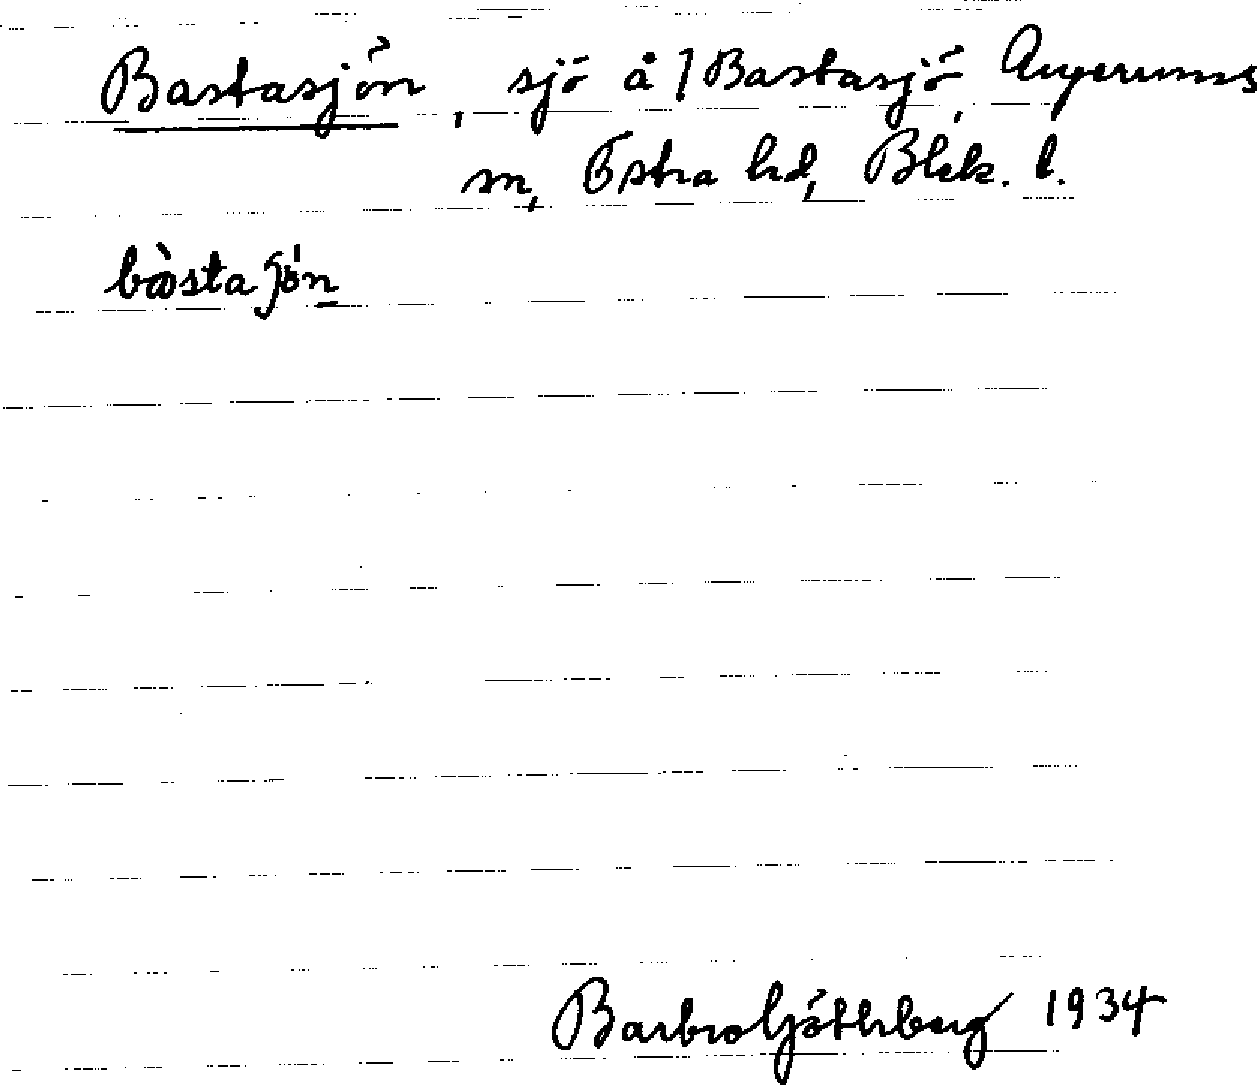 Bastasjön, sjö å 1 Bastasjö, Augerums
sn, Östra hd, Blek. l.
Barbro Göthberg 1934